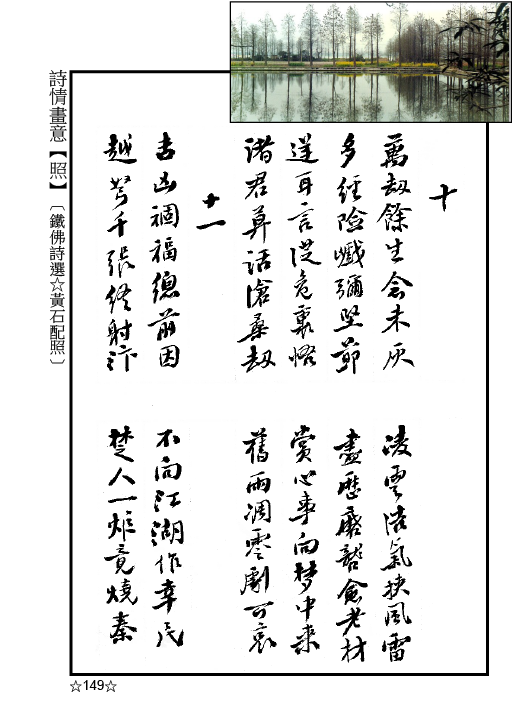 詩情畫意【照】〔鐵佛詩選☆黃石配照〕
十
萬劫餘生念未灰 凌雲浩氣挾風雷
多經險巇彌堅節 盡歷磨 愈老材
逆耳言從危裏悟 賞心事向夢中來
諸君莫話滄桑劫 舊雨凋零劇可哀
十一
吉凶禍福總前因 不向江湖作幸民
越弩千張終射汴 楚人一炬竟燒秦
☆149☆